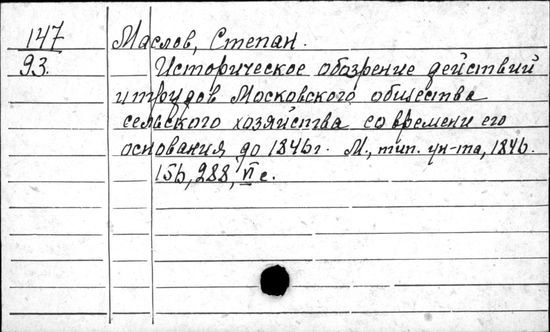 147 Маслов, Степан.
93. Историческое обозрение действий
и трудов Московского общества
сельского хозяйства со времени его
основания до 1846 г. М., тип. ун-та, 1846.
156, 288, VI с.